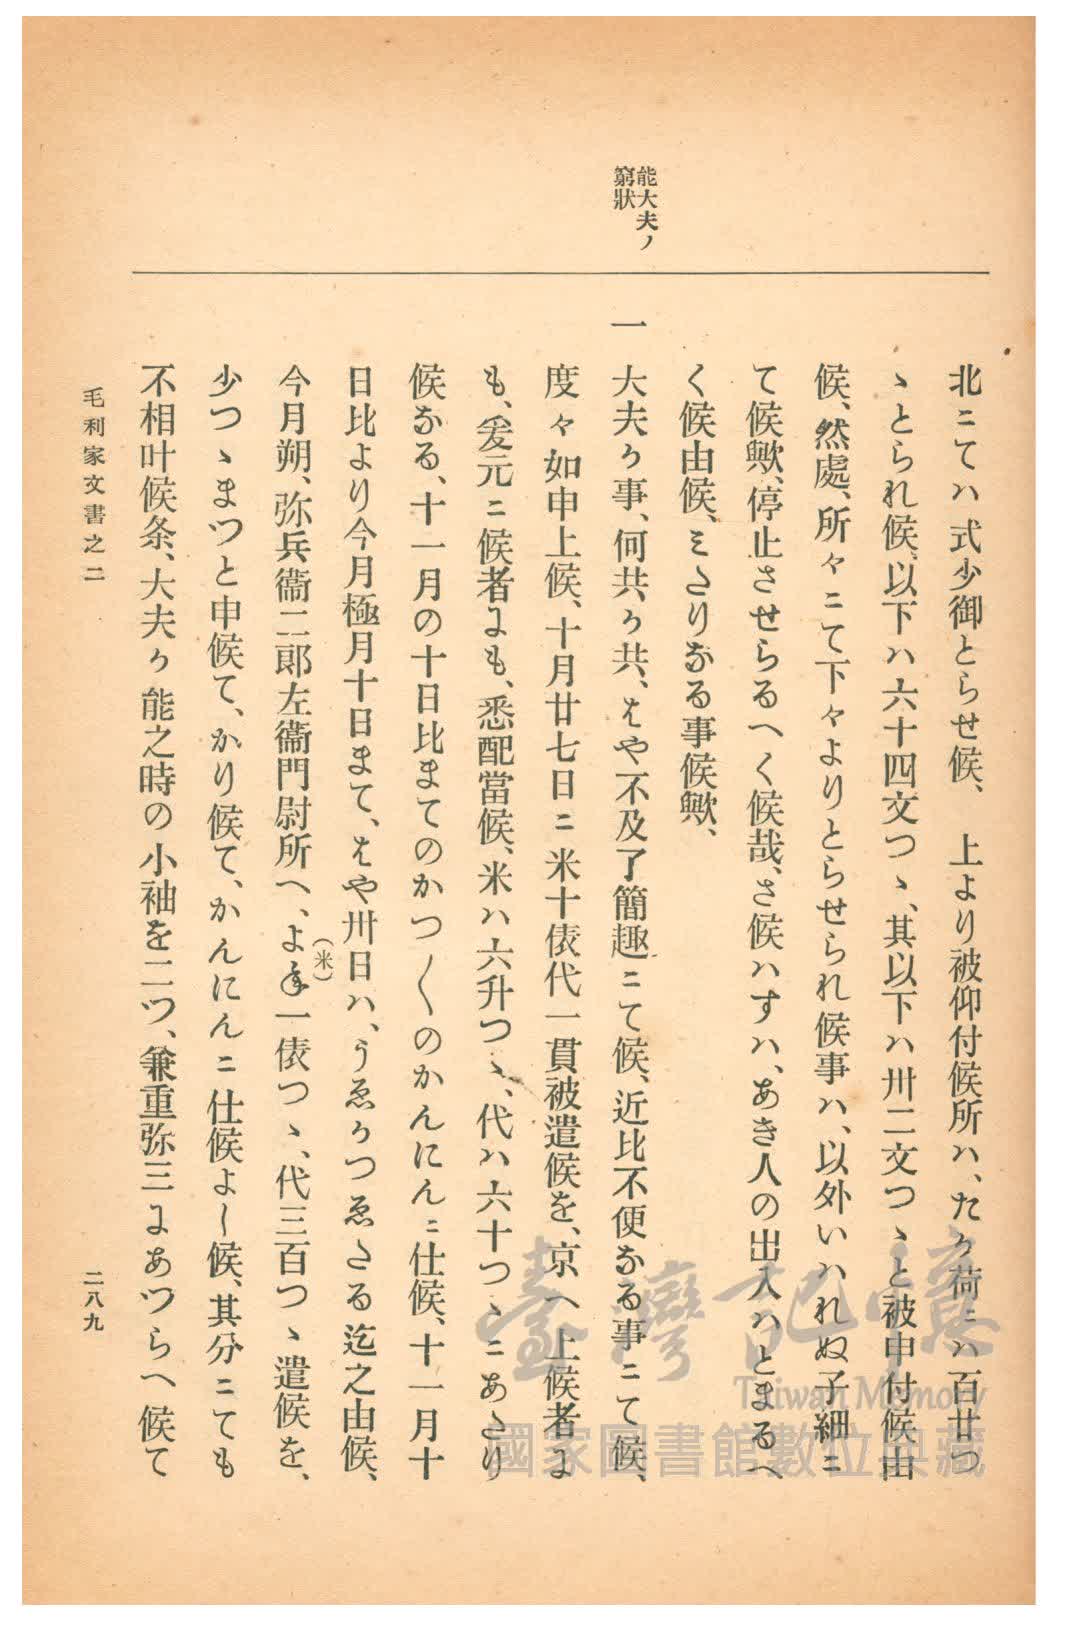 能大夫ノ
窮狀
北ニてハ式少御とらせ候、　上より被仰付候所ハ、たか荷ニハ百廿つ
ヽとられ候、以下ハ六十四文つヽ、其以下ハ卅二文つヽと被申付候由
候、然處、所々ニて下々よりとらせられ候事ハ、以外いハれぬ子細ニ
て候歟、停止させらるへく候哉、さ候ハすハ、あき人の出入ハとまるへ
く候由候、ミたりなる事候歟、
一　大夫か事、何共か共、はや不及了簡趣ニて候、近比不便なる事ニて候、
度々如申上候、十月廿七日ニ米十俵代一貫被遣候を、京へ上候者よ
も、爰元ニ候者よも、悉配當候、米ハ六升つヽ、代ハ六十つヽニあたり
候なる、十一月の十日比まてのかつ〱のかんにんニ仕候、十一月十
日比より今月極月十日まて、はや卅日ハ、うゑかつゑたる迄之由候、
今月朔、弥兵衞二郎左衞門尉所へ、よね（米）一俵つヽ、代三百つヽ遣候を、
少つヽまつと申候て、かり候て、かんにんニ仕候よし候、其分ニても
不相叶候条、大夫か能之時の小袖を二つ、兼重弥三よあつらへ候て
毛利家文書之二
二八九
臺灣記憶
Taiwan Memory
國家圖書館數位典藏